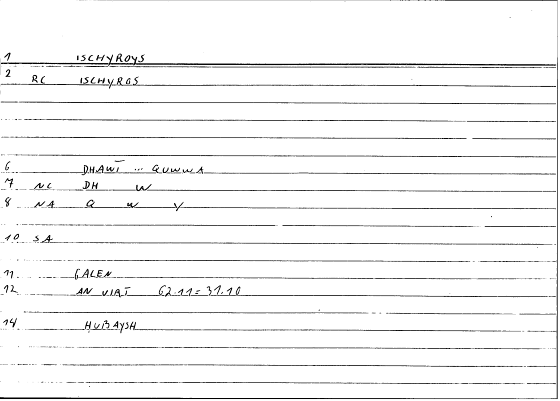 1 ISCHYROYS
2 RC ISCHYROS
6 DHAWĪ ... QUWWA
7 NC DH W
8 NA Q W Y
10 SA
11 GALEN
12 AN VIRT 62.11 = 31.10
14 HUBAYSH